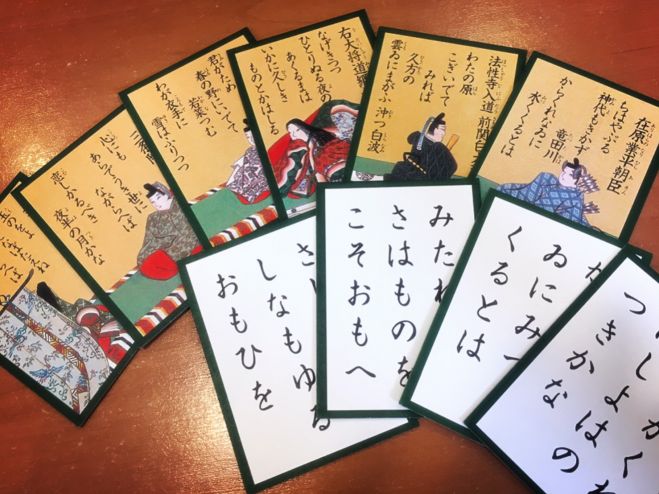 玉のをよ
心にも
あらでうき世に
ながらへば
恋しかるべき
夜半の月かな
君がため
春の野にいでて
若菜つむ
わが衣手に
雪はふりつつ
右大将道綱
なげきつつ
ひとりぬる夜の
あくるまは
いかに久しき
ものとかはしる
法性寺入道前関白
わたの原
こぎいでて
みれば
久方の
雲ゐにまがふ 沖つ白波
在原業平朝臣
ちはやぶる
神代もきかず
竜田川
からくれなゐに
水くくるとは
さし
しなもゆる
おもひを
みたれ
さはものを
こそおもへ
か
ゐにみつ
くるとは
かくれ
しよはの
つきかな